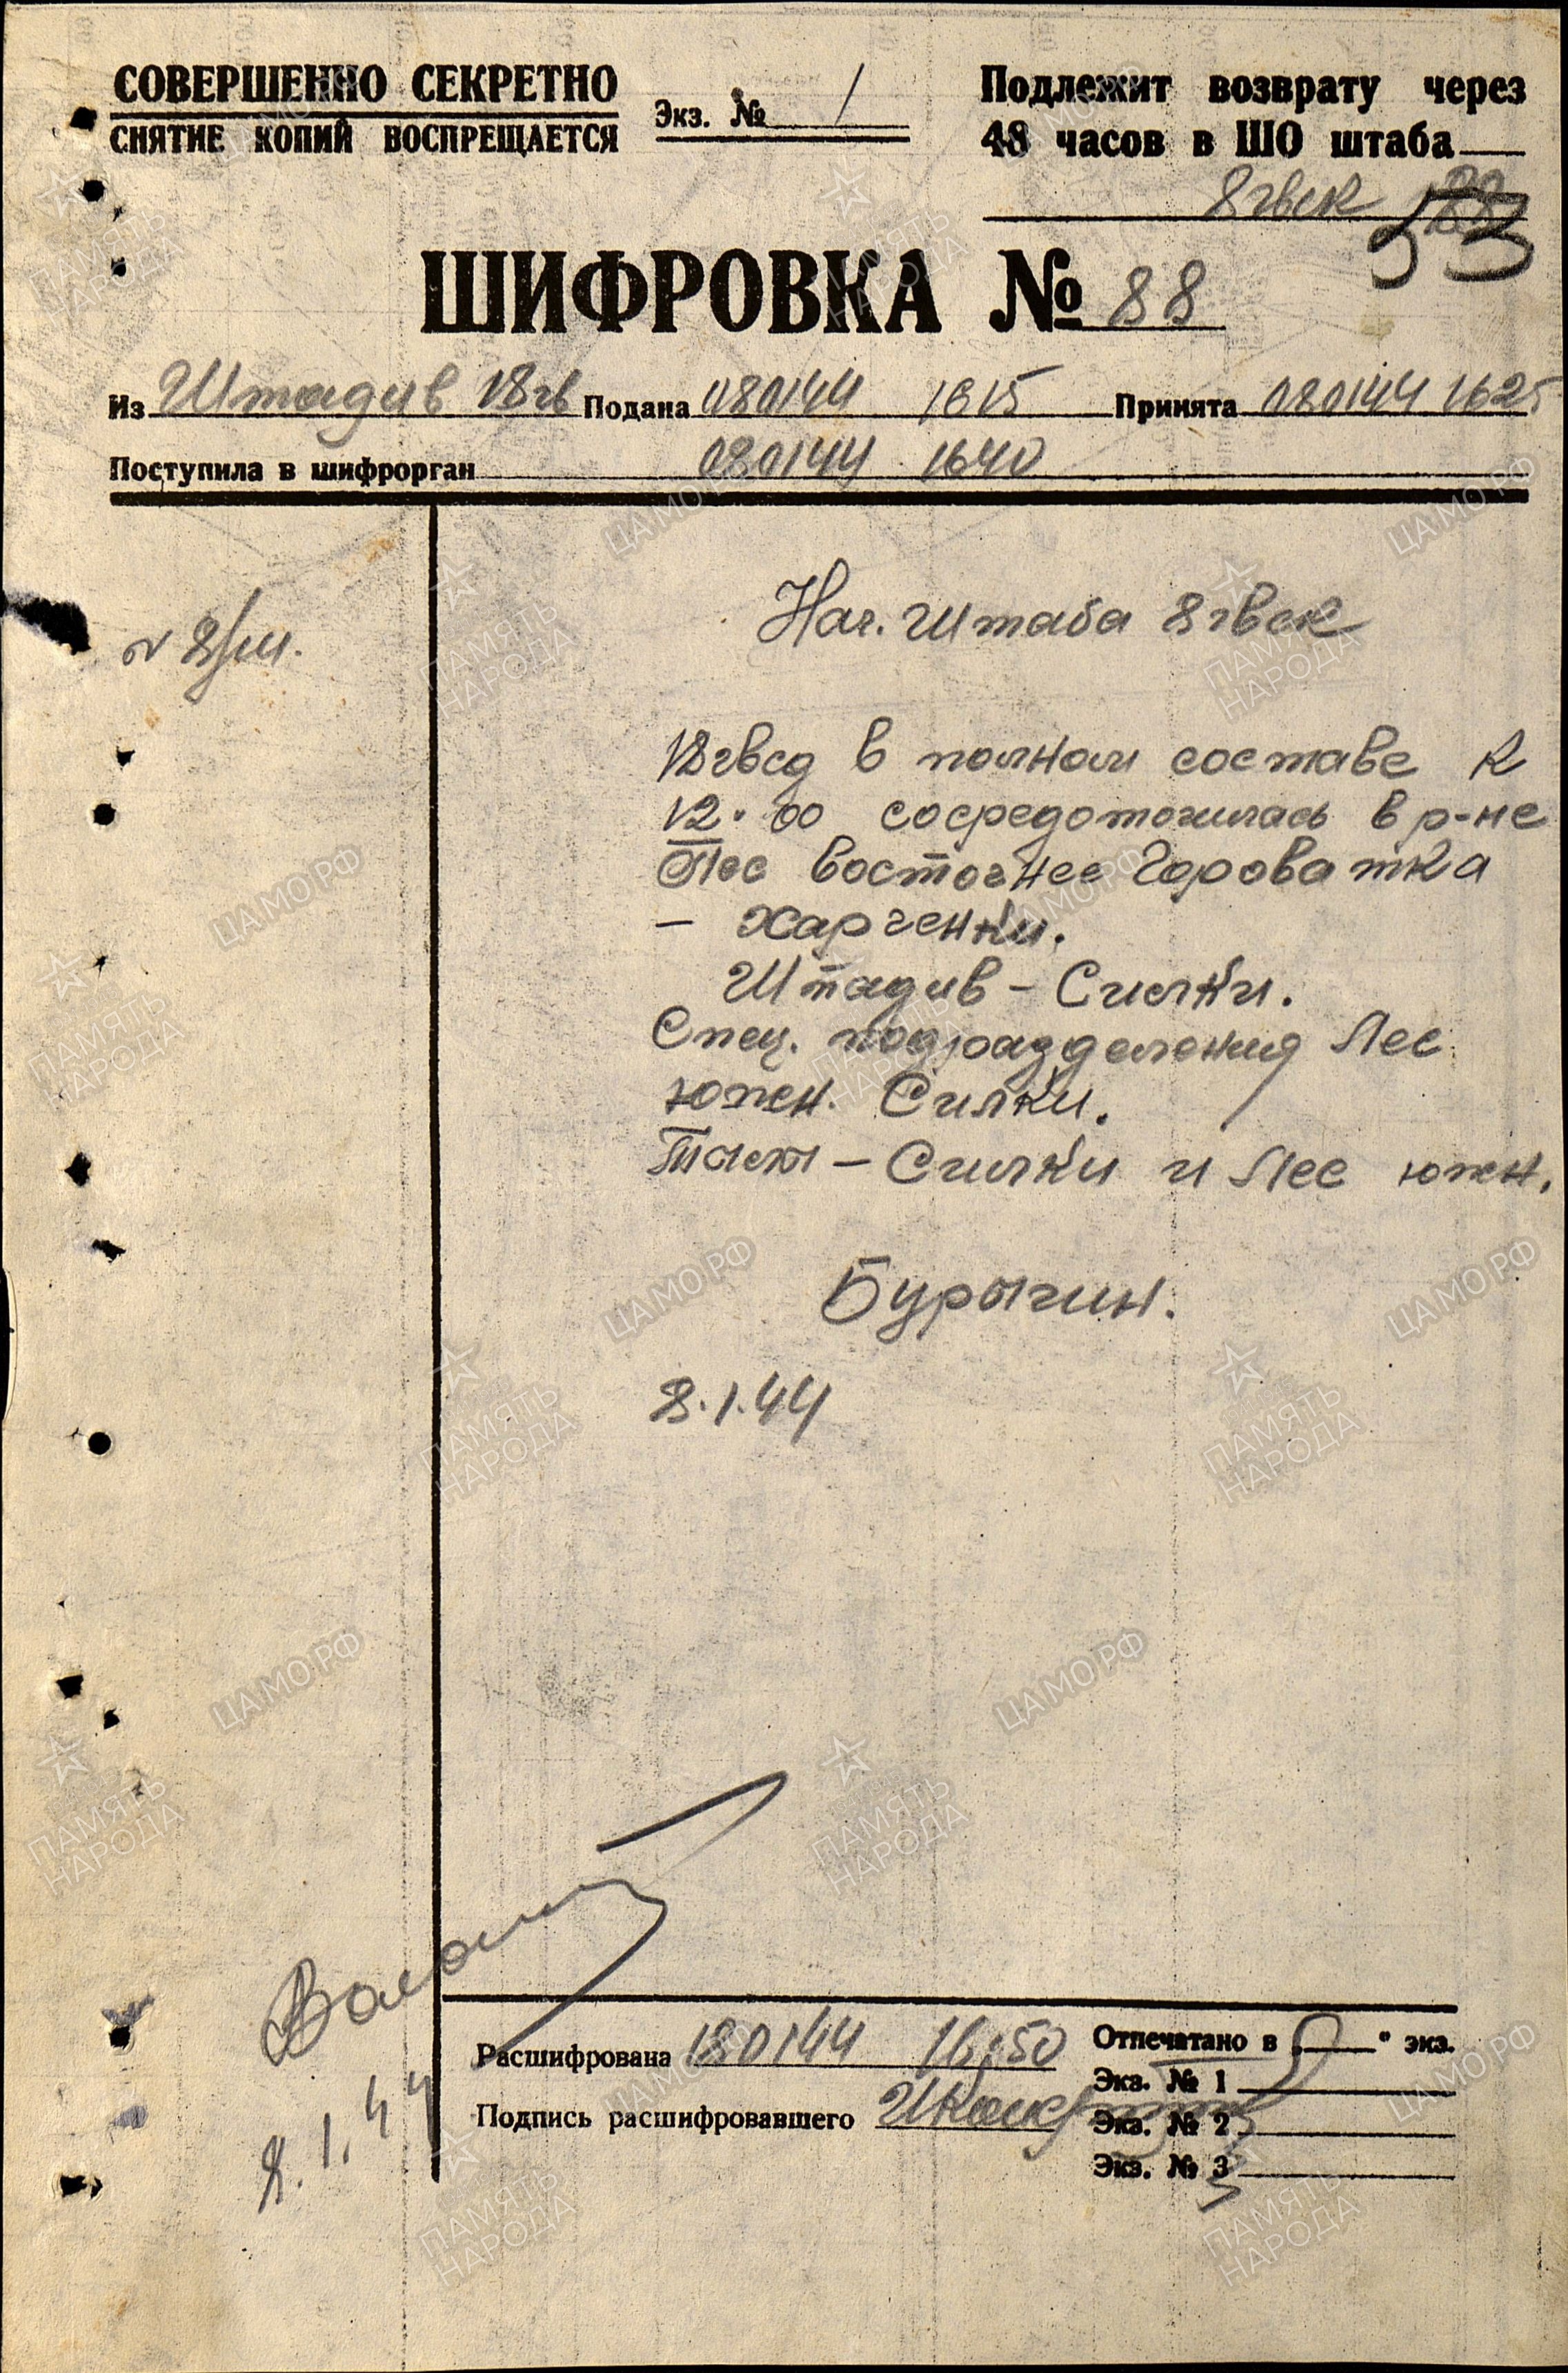 СОВЕРШЕННО СЕКРЕТНО
СНЯТИЕ КОПИЙ ВОСПРЕЩАЕТСЯ
Экз. № 1
Подлежит возврату через
48 часов в ШО штаба
8 гвск
53
ШИФРОВКА № 88
Из Штадив 18 гв Подана 080144 1615 Принята 080144 1625
Поступила в шифрорган 080144 1640
Нач. Штаба 8 гвск
18 гвсд в полном составе к
12.00 сосредоточилась в р-не
Лес восточнее Гороватка
- Харченки.
Штадив - Силки.
Спец. подразделения Лес
южн. Силки.
Тылы - Силки и Лес южн.
Бурыгин.
8.1.44
8.1.44
Расшифрована 180144 16.50
Подпись расшифровавшего
Отпечатано в „ " экз.
Экз. № 1
Экз. № 2
Экз. № 3
ПАМЯТЬ НАРОДА
ЦАМО.РФ